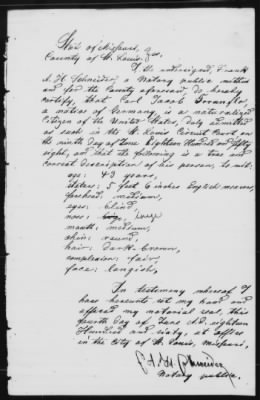 State of Missouri,
County of St. Louis, } ss.
I the undersigned, Frank
A. H. Schneider, a Notary public within
and for the County aforesaid, do hereby
certify, that Carl Jacob
a native of Germany is a naturalized
Citizen of the United States, duly admitted
as such in the St. Louis Circuit Court on
the ninth day of June Eighteen Hundred and fifty
eight, and that the following is a true and
correct description of his person, to wit:
age: 43 years,
stature: 5 feet 6 inches English measure,
forehead: medium,
eyes:
nose: large
mouth: medium,
chin: round,
hair: dark-brown,
complexion: fair,
face: longish,
In testimony whereof I
have hereunto set my hand and
affixed my notarial seal, this
fourth day of June A.D. eighteen
Hundred and sixty, at office
in the City of St. Louis, Missouri,
Schneider
Notary public